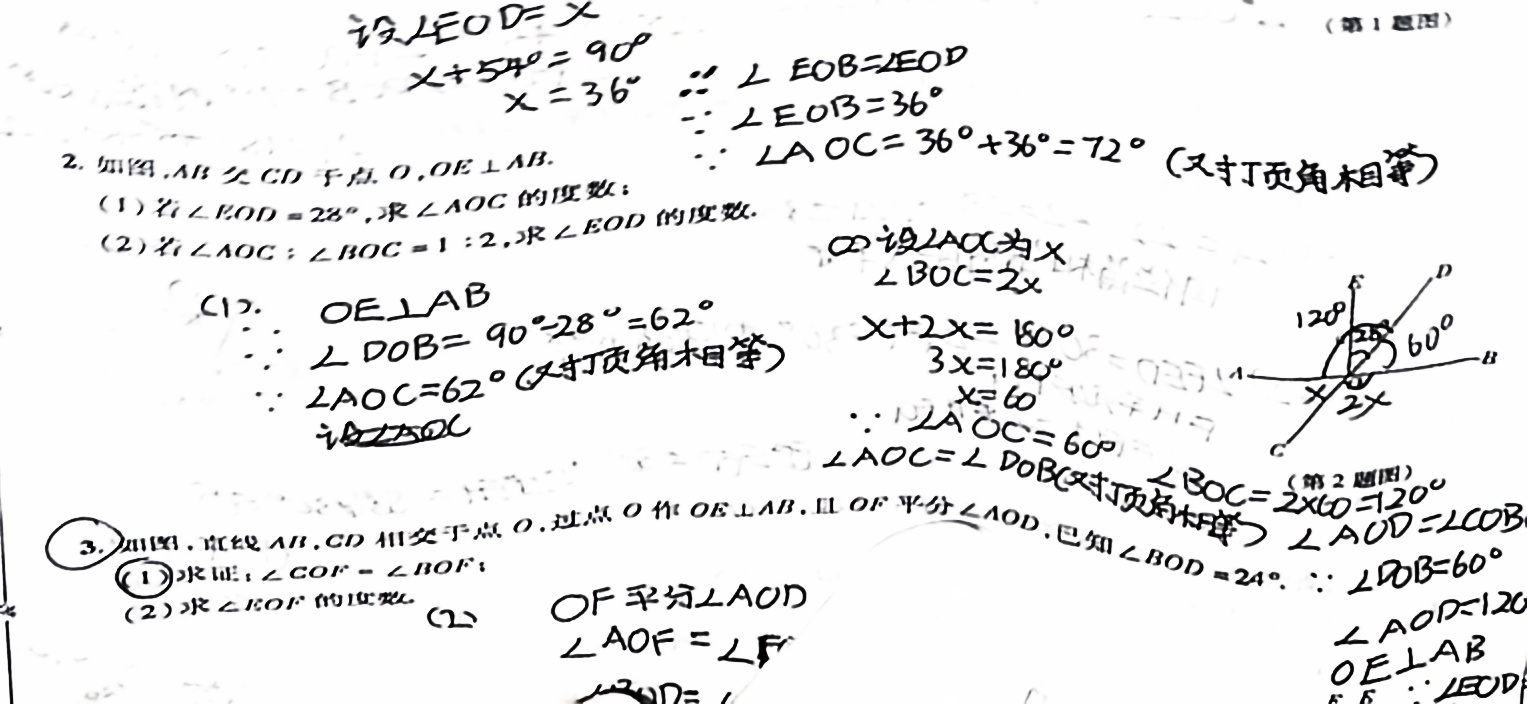 设∠EOD=x
(第1题图)
x+54°=90°
x=36°
∵ ∠EOB=∠EOD
∵ ∠EOB=36°
∵ ∠AOC=36°+36°=72° (对顶角相等)
2. 如图,AB交CD于点O,OE⊥AB.
(1)若∠EOD=28°,求∠AOC的度数;
(2)若∠AOC:∠BOC=1:2,求∠EOD的度数.
(1). OE⊥AB
∵ ∠DOB=90°-28°=62°
∵ ∠AOC=62°(对顶角相等)
设∠AOC
(2)设∠AOC为x
∠BOC=2x
x+2x=180°
3x=180°
x=60
∵ ∠AOC=60°
∠AOC=∠DOB(对顶角相等)
E D
120° 28 60°
A B
x 2x
C
(第2题图)
∠BOC=2×60=120°
∠AOD=∠COB
∵ ∠DOB=60°
∠AOD=120
OE⊥AB
∵ ∠EOD
3. 如图,直线AB,CD相交于点O,过点O作OE⊥AB,且OF平分∠AOD,已知∠BOD=24°.
(1)求证:∠COF=∠BOF;
(2)求∠EOF的度数.
(2) OF平分∠AOD
∠AOF=∠F